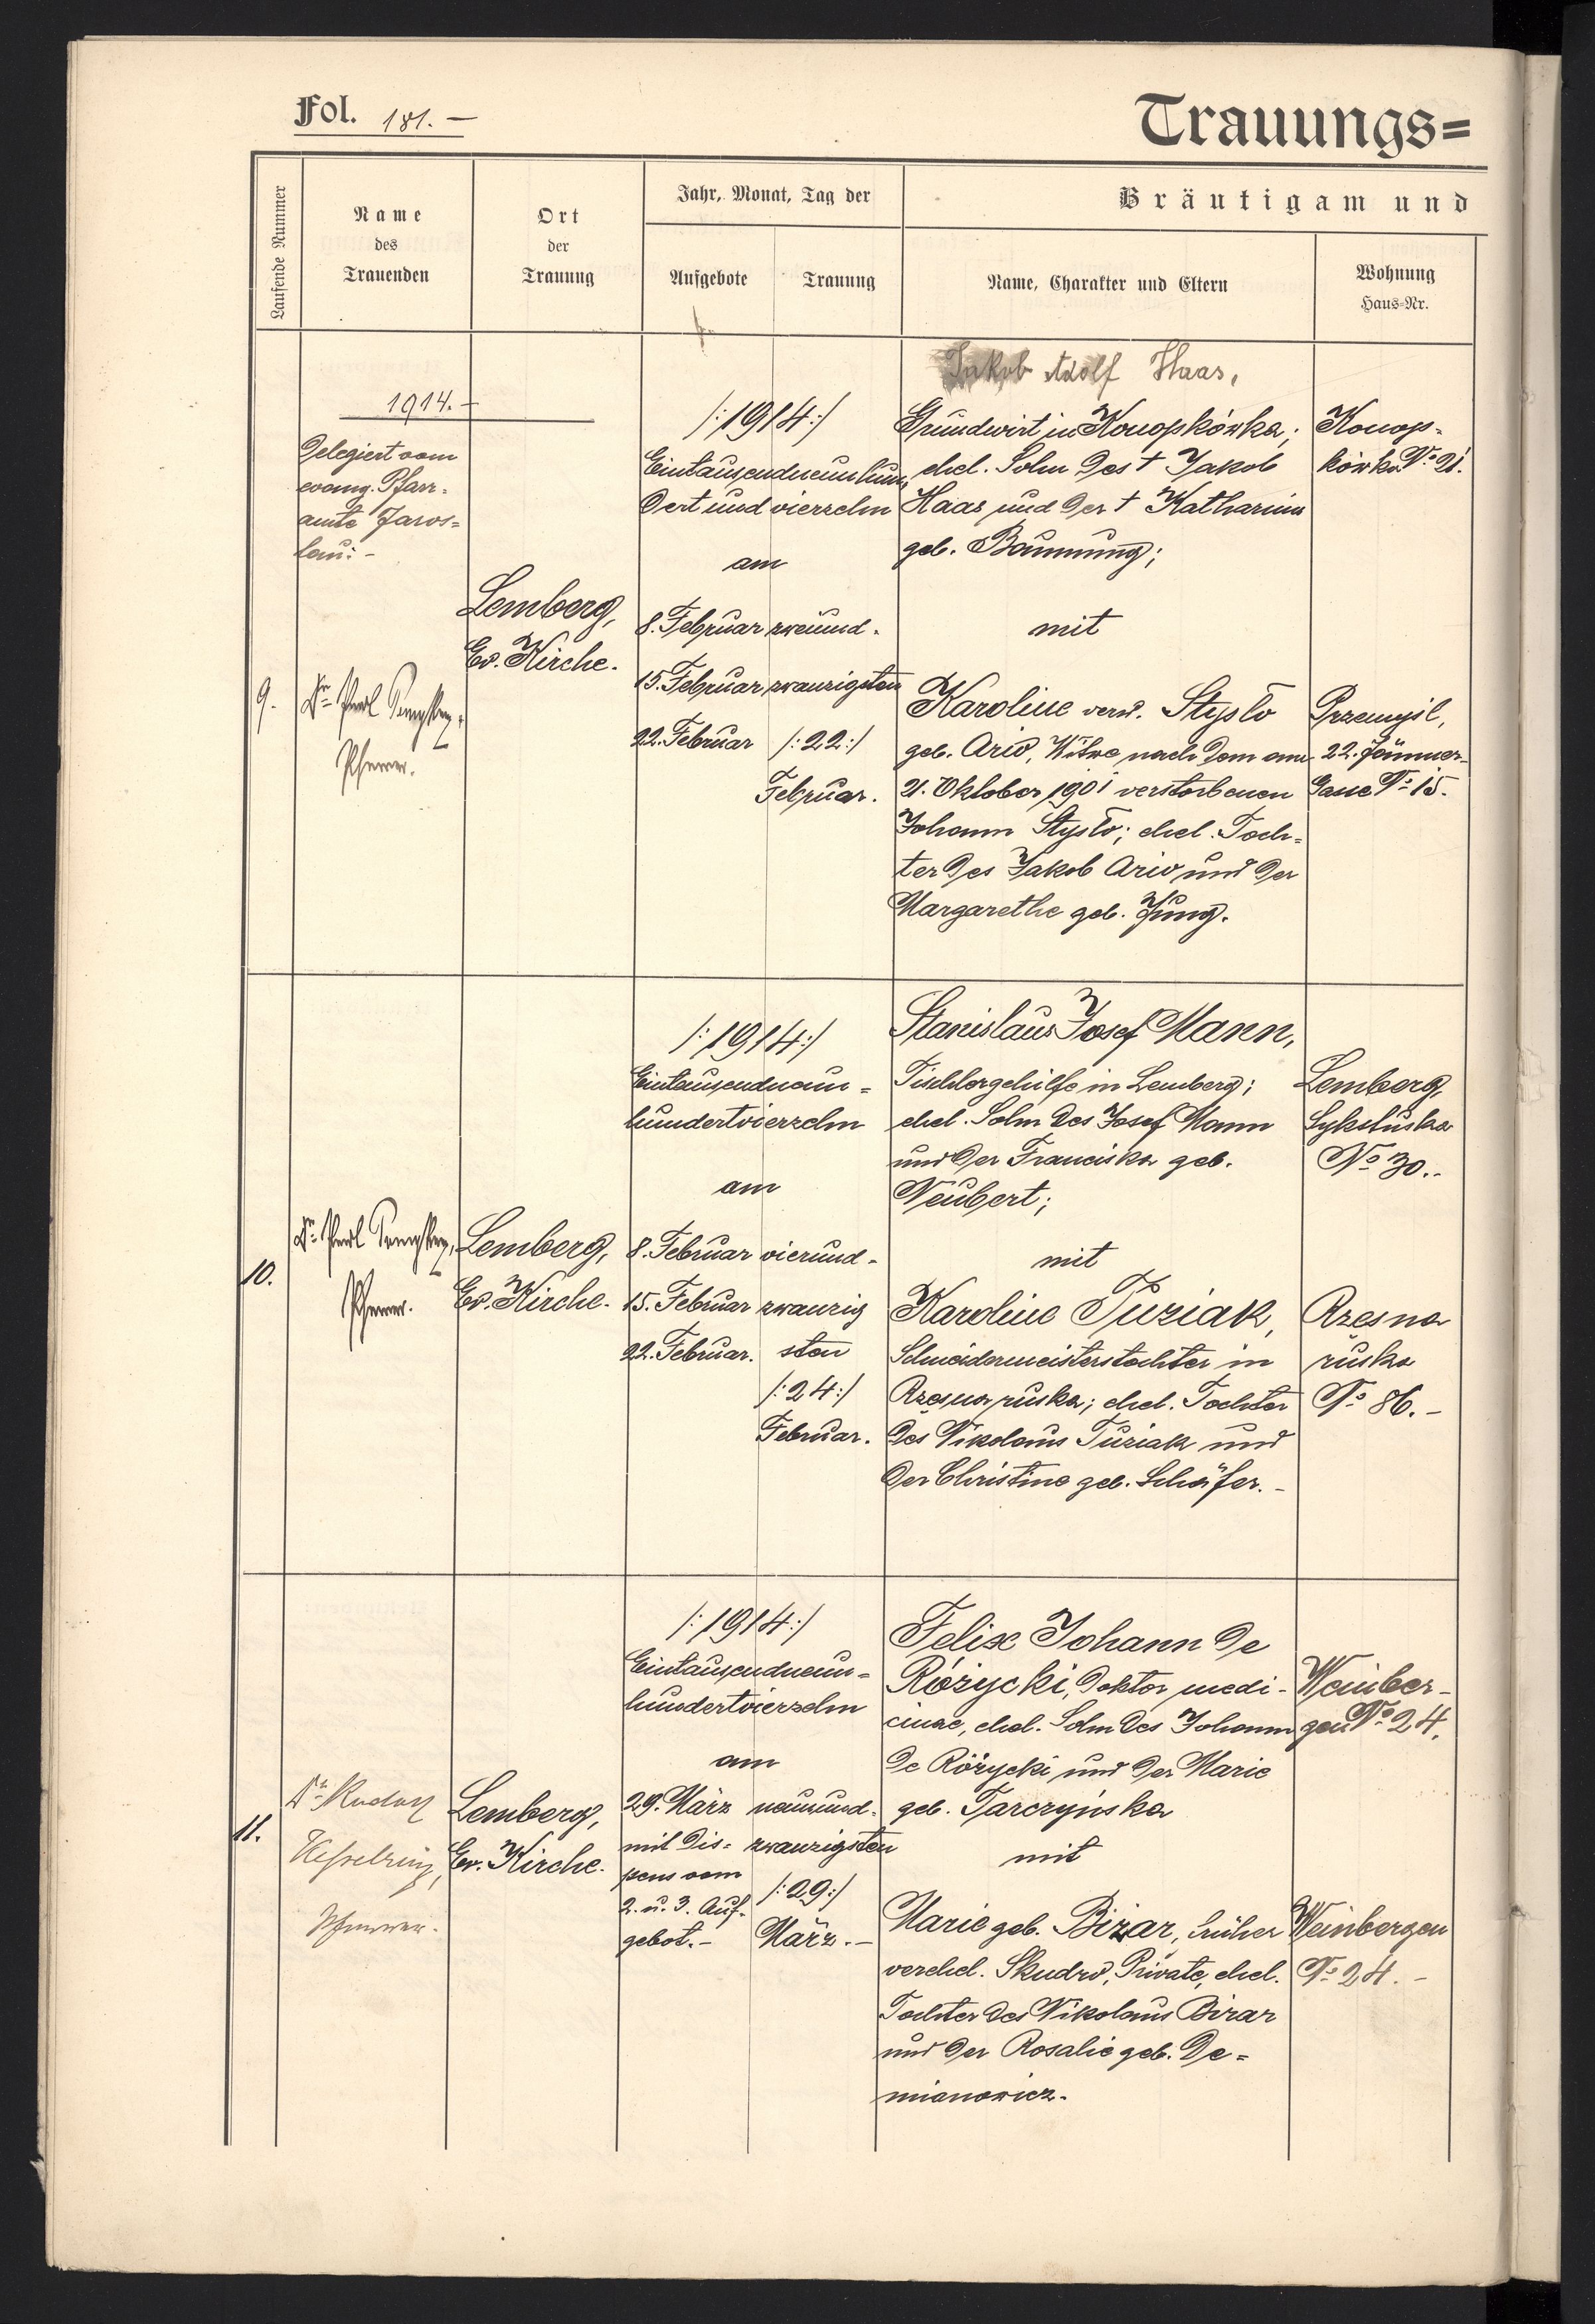 Fol. 181. —
Trauungs=
Laufende Nummer
Name
des
Trauenden
Ort
der
Trauung
Jahr, Monat, Tag der
Aufgebote
Trauung
Bräutigam und
Name, Charakter und Eltern
Wohnung
Haus-Nr.
1914. —
Delegiert vom
evang. Pfarr-
amte Jaros-
lau: -
9.
Dr. Paul
Pfarrer.
Lemberg,
Ev. Kirche.
/:1914:/
Eintausendneunhun-
dert und vierzehn
am
8. Februar zweiund-
15. Februar zwanzigsten
22. Februar /:22:/
Februar.
Jakob Adolf Haas,
Grundwirt in Konopkówka;
ehel. Sohn des † Jakob
Haas und der † Katharina
geb.
mit
Karoline verw. Stysło
geb. Ario, Witwe nach dem am
21. Oktober 1901 verstorbenen
Johann Stysło; ehel. Toch-
ter des Jakob Ario und der
Margarethe geb. Jung.
Konop-
kówka No 21.
Przemysl,
22. Jänner-
Gasse No 15.
10.
Dr. Paul
Pfarrer.
Lemberg,
Ev. Kirche.
/:1914:/
Eintausendneun=
hundertvierzehn
am
8. Februar vierund-
15. Februar zwanzig
22. Februar. sten
/:24:/
Februar.
Stanislaus Josef Mann,
Tischlergehilfe in Lemberg;
ehel. Sohn des Josef Mann
und der Franciska geb.
Neubert;
mit
Karoline Tuziak,
Schneidermeisterstochter in
Rzęsna ruska; ehel. Tochter
des Nikolaus Tuziak und
der Christine geb. Schäfer. -
Lemberg,
Sykstuska
No 30. -
Rzesna
ruska
No 86. -
11.
Dr. Rudolf
Kesselring,
Pfarrer.
Lemberg,
Ev. Kirche.
/:1914:/
Eintausendneun=
hundertvierzehn
am
29. März neunund-
mit Dis= zwanzigsten
pens vom
2. u. 3. Auf-
gebot. -
/:29:/
März. -
Felix Johann de
Różycki, Doktor medi-
cinae, ehel. Sohn des Johann
de Różycki und der Marie
geb. Tarczyńska
mit
Marie geb. Bizar, früher
verehel. Skudro, Private, ehel.
Tochter des Nikolaus Bizar
und der Rosalie geb. De=
mianowicz.
Weinber-
gen No 24.
Weinbergen
No 24. -